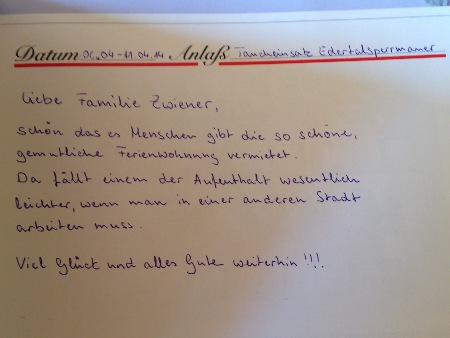 Datum 06.04-11.04.14 Anlaß Taucheinsatz Edertalsperrmauer
Liebe Familie Zwiener,
schön das es Menschen gibt die so schöne,
gemütliche Ferienwohnung vermietet.
Da fällt einem der Aufenthalt wesentlich
leichter, wenn man in einer anderen Stadt
arbeiten muss.
Viel Glück und alles Gute weiterhin !!!